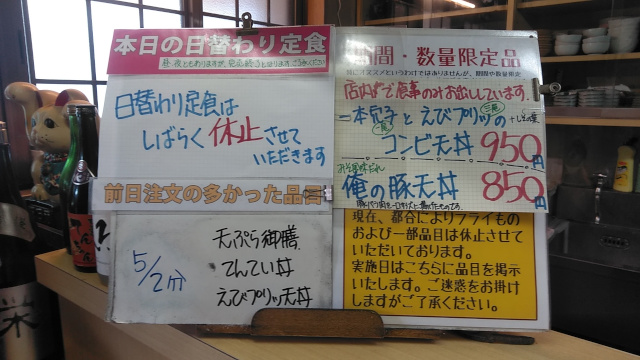 本日の日替わり定食
昼夜ともありますが、完売終了となります。ごめんください
日替わり定食は
しばらく休止させて
いただきます
前日注文の多かった品
5/2分
天ぷら御膳
てんてい丼
えびプリッツ天丼
間・数量限定品
特にオススメというわけではありませんが、期間や数量限定
店内で食事のみお出ししています。
一本穴子とえびプリッツの
コンビ天丼 950円
俺の豚天丼 850円
現在、都合によりフライもの
および一部品目は休止させて
いただいております。
実施日はこちらに品目を掲示
いたします。ご迷惑をお掛け
しますがご了承ください。